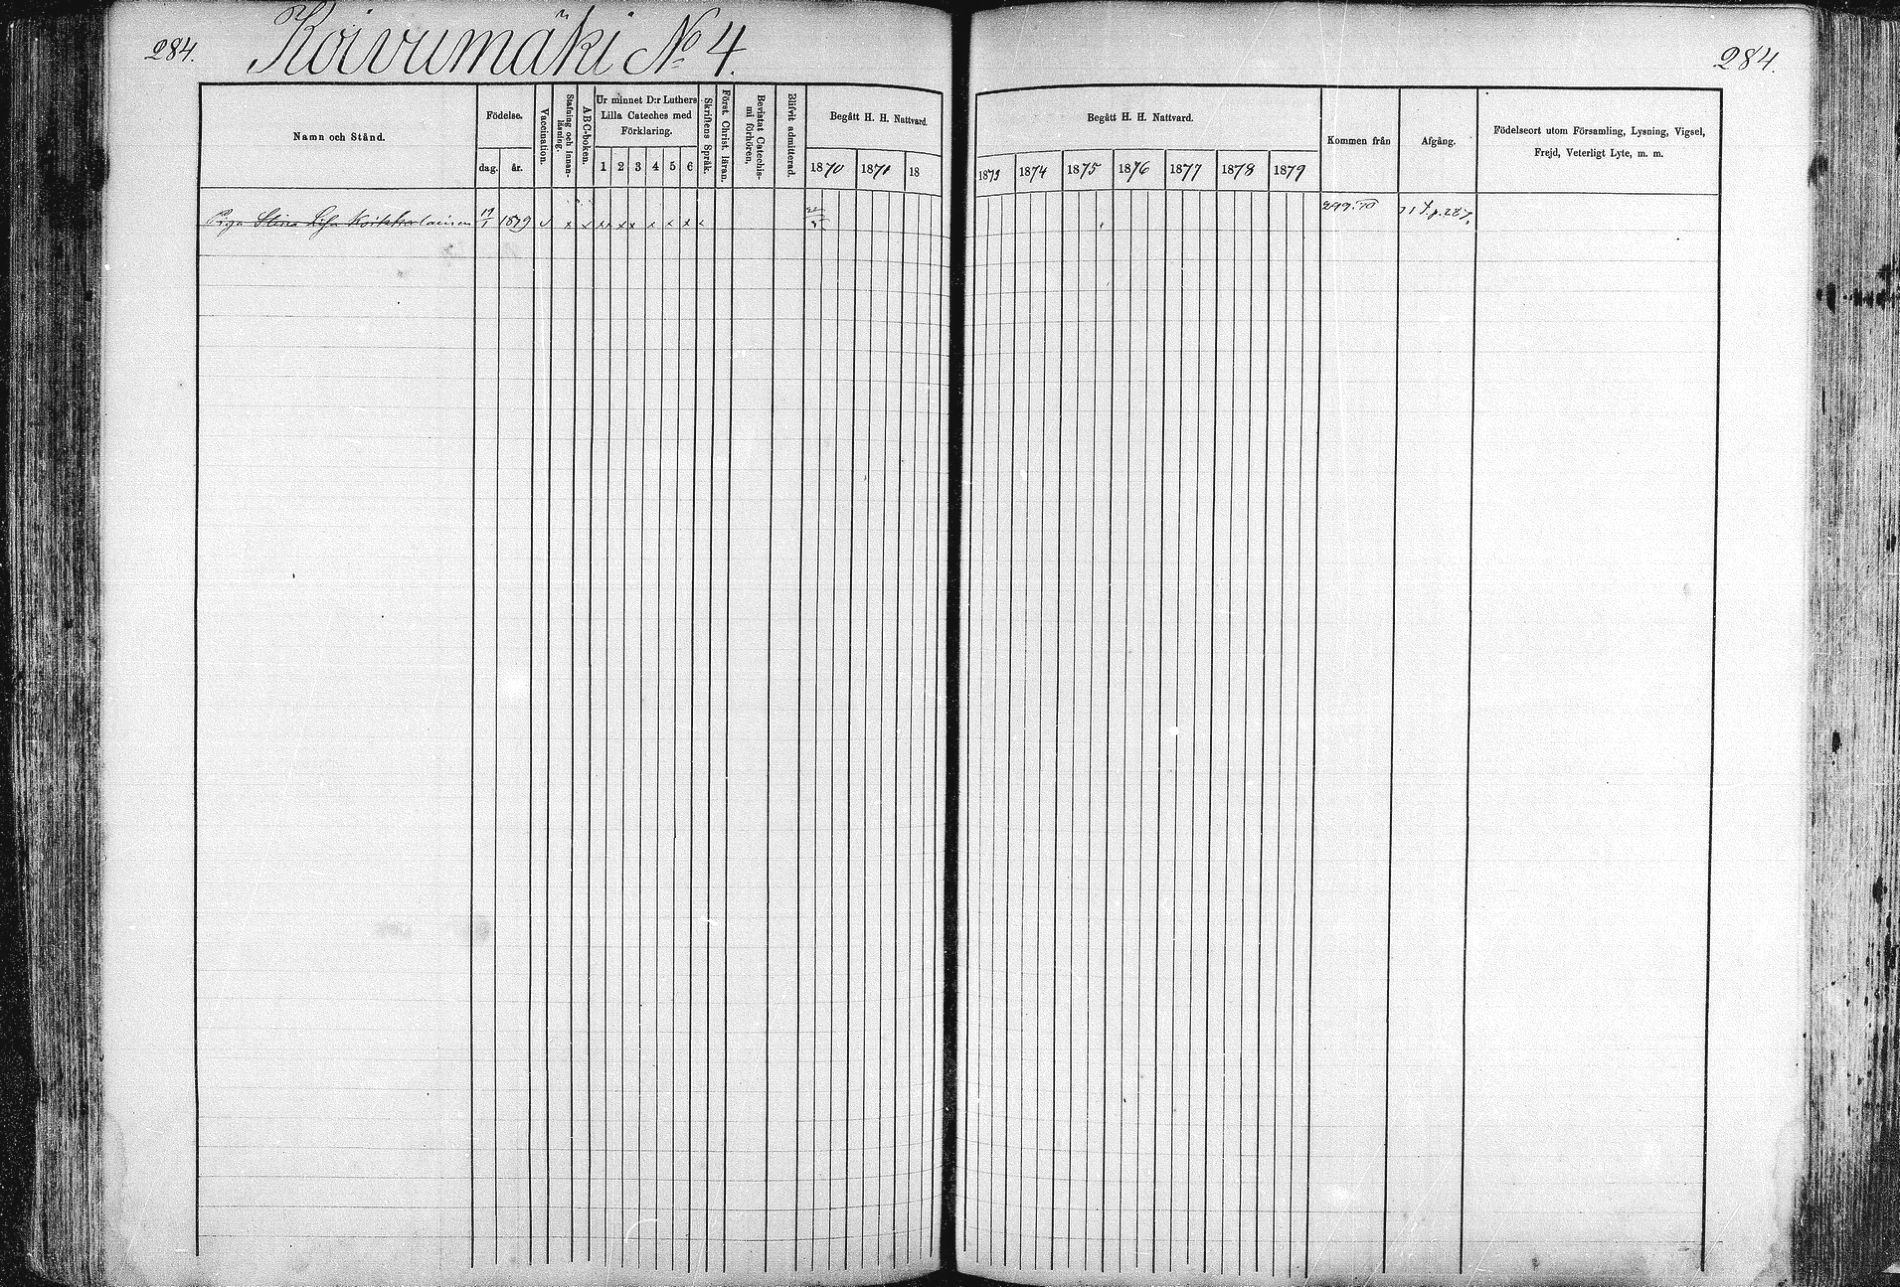 284. Koivumäki No 4. 284.
Namn och Stånd. Födelse. dag. år. Vaccination. Stafning och innanläsning. ABC-boken. Ur minnet D:r Luthers Lilla Cateches med Förklaring. 1 2 3 4 5 6 Skriftens Språk. Först. Christ. läran. Bevistat Catechismi förhören. Blifvit admitterad. Begått H. H. Nattvard. 1870 1871 18
Begått H. H. Nattvard. 1873 1874 1875 1876 1877 1878 1879 Kommen från Afgång. Födelseort utom Församling, Lysning, Vigsel, Frejd, Veterligt Lyte, m. m.
Piga Stina Lisa